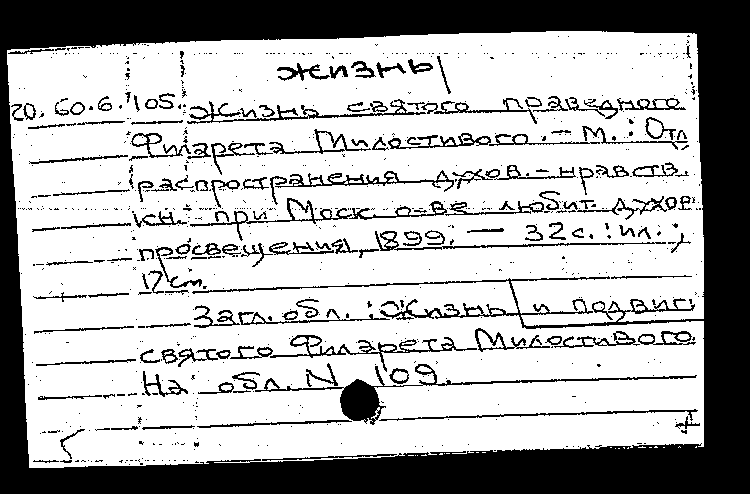 жизнь
20.60.6.105. Жизнь святого праведного
Филарета Милостивого. – М.: Отд
распространения духов.-нравств.
кн. при Моск. о-ве любит. духов.
просвещения, 1899. — 32 с.: ил.;
17 см.
Загл. обл.: Жизнь и подвиги
святого Филарета Милостивого.
На обл. N 109.